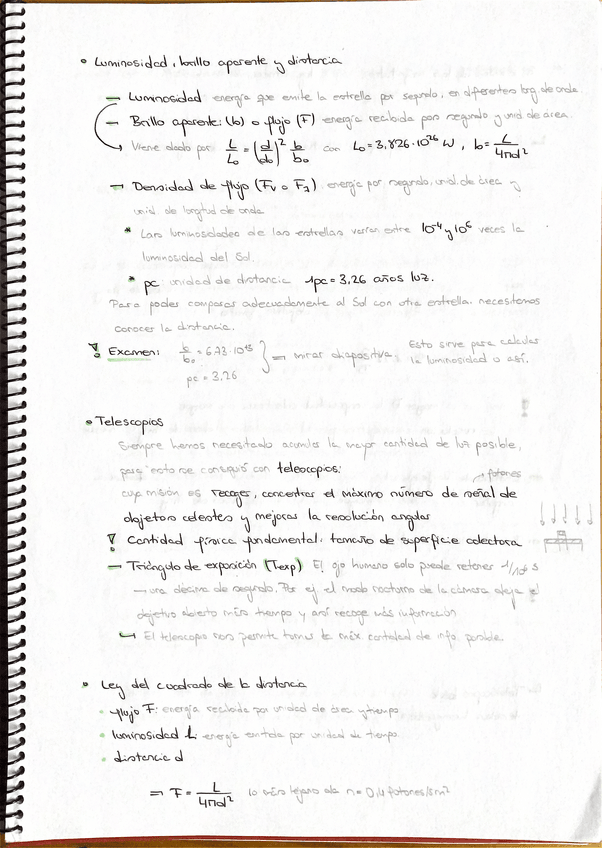 • Luminosidad, brillo aparente y distancia
— Luminosidad energía que emite la estrella por segundo, en diferentes long de onda.
— Brillo aparente: (b) o flujo (F) energía recibida por segundo y unid de área.
Viene dado por L/L₀ = (d/d₀)² b/b₀ con L₀ = 3,826·10²⁶ W, b = L/4πd²
— Densidad de flujo (Fν o Fλ) energía por segundo, unid. de área y
unid de longitud de onda
* Las luminosidades de las estrellas varían entre 10⁻⁴ y 10⁶ veces la
luminosidad del Sol.
* pc: unidad de distancia 1pc = 3,26 años luz.
Para poder comparar adecuadamente al Sol con otra estrella, necesitamos
conocer la distancia.
! Examen: b/b₀ = 6,73·10 } = mirar diapositiva. Esto sirve para calcular
pc = 3,26 la luminosidad o así.
• Telescopios
Siempre hemos necesitado acumular la mayor cantidad de luz posible,
para esto se consiguió con telescopios:
cuya misión es recoger, concentrar el máximo número de señal de → fotones
objetos celestes y mejorar la resolución angular
! Cantidad física fundamental: tamaño de superficie colectora
— Triángulo de exposición (Texp) El ojo humano solo puede retener 1/10 s
→ una décima de segundo. Por ej el modo nocturno de la cámara deja el
objetivo abierto más tiempo y así recoge más información
↳ El telescopio nos permite tomar la máx cantidad de info. posible.
• Ley del cuadrado de la distancia
• flujo F: energía recibida por unidad de área y tiempo
• luminosidad L: energía emitida por unidad de tiempo
• distancia d
⇒ F = L/4πd² lo más lejano da n = 0,4 fotones/sm²